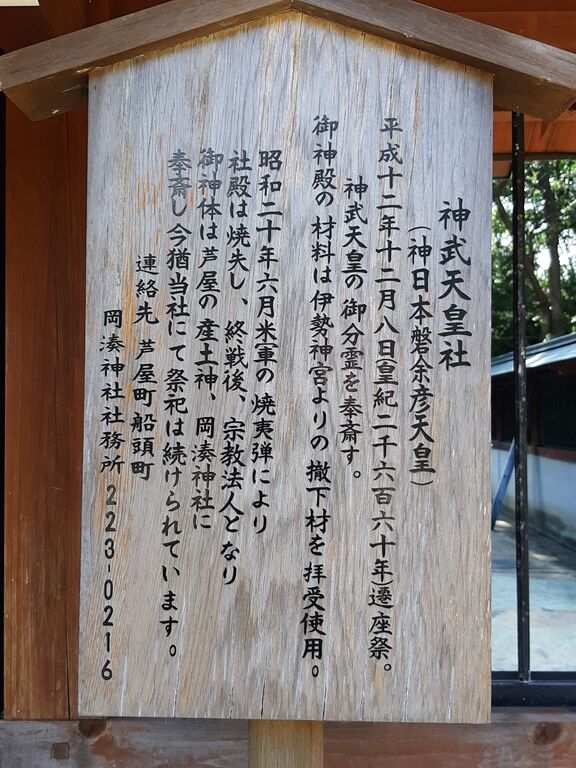 神武天皇社
(神日本磐余彦天皇)
平成十二年十二月八日(皇紀二千六百六十年)遷座祭。
神武天皇の御分霊を奉斎す。
御神殿の材料は伊勢神宮よりの撤下材を拝受使用。
昭和二十年六月米軍の焼夷弾により
社殿は焼失し、終戦後、宗教法人となり
御神体は芦屋の産土神、岡湊神社に
奉斎し今猶当社にて祭祀は続けられています。
連絡先 芦屋町船頭町
岡湊神社社務所 223-0216